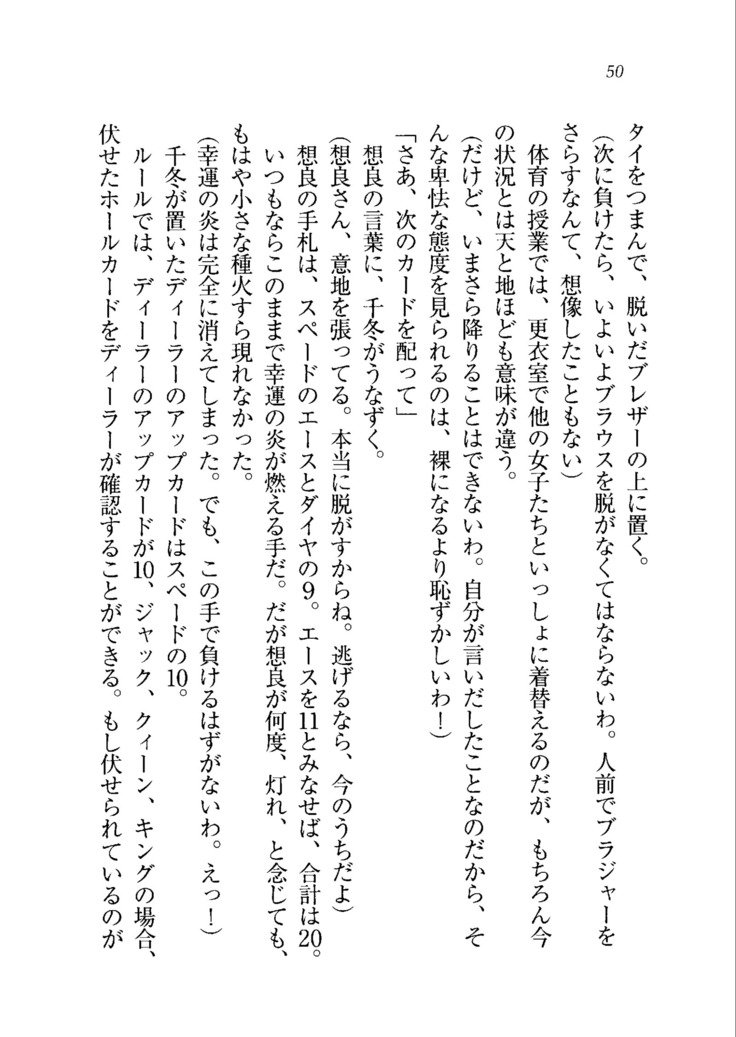 50
タイをつまんで、脱いだブレザーの上に置く。
（次に負けたら、いよいよブラウスを脱がなくてはならないわ。人前でブラジャーを
さらすなんて、想像したこともない）
　体育の授業では、更衣室で他の女子たちといっしょに着替えるのだが、もちろん今
の状況とは天と地ほども意味が違う。
（だけど、いまさら降りることはできないわ。自分が言いだしたことなのだから、そ
んな卑怯な態度を見られるのは、裸になるより恥ずかしいわ！）
「さあ、次のカードを配って」
　想良の言葉に、千冬がうなずく。
（想良さん、意地を張ってる。本当に脱がすからね。逃げるなら、今のうちだよ）
　想良の手札は、スペードのエースとダイヤの9。エースを11とみなせば、合計は20。
　いつもならこのままで幸運の炎が燃える手だ。だが想良が何度、灯れ、と念じても、
もはや小さな種火すら現れなかった。
（幸運の炎は完全に消えてしまった。でも、この手で負けるはずがないわ。えっ！）
　千冬が置いたディーラーのアップカードはスペードの10。
　ルールでは、ディーラーのアップカードが10、ジャック、クィーン、キングの場合、
伏せたホールカードをディーラーが確認することができる。もし伏せられているのが